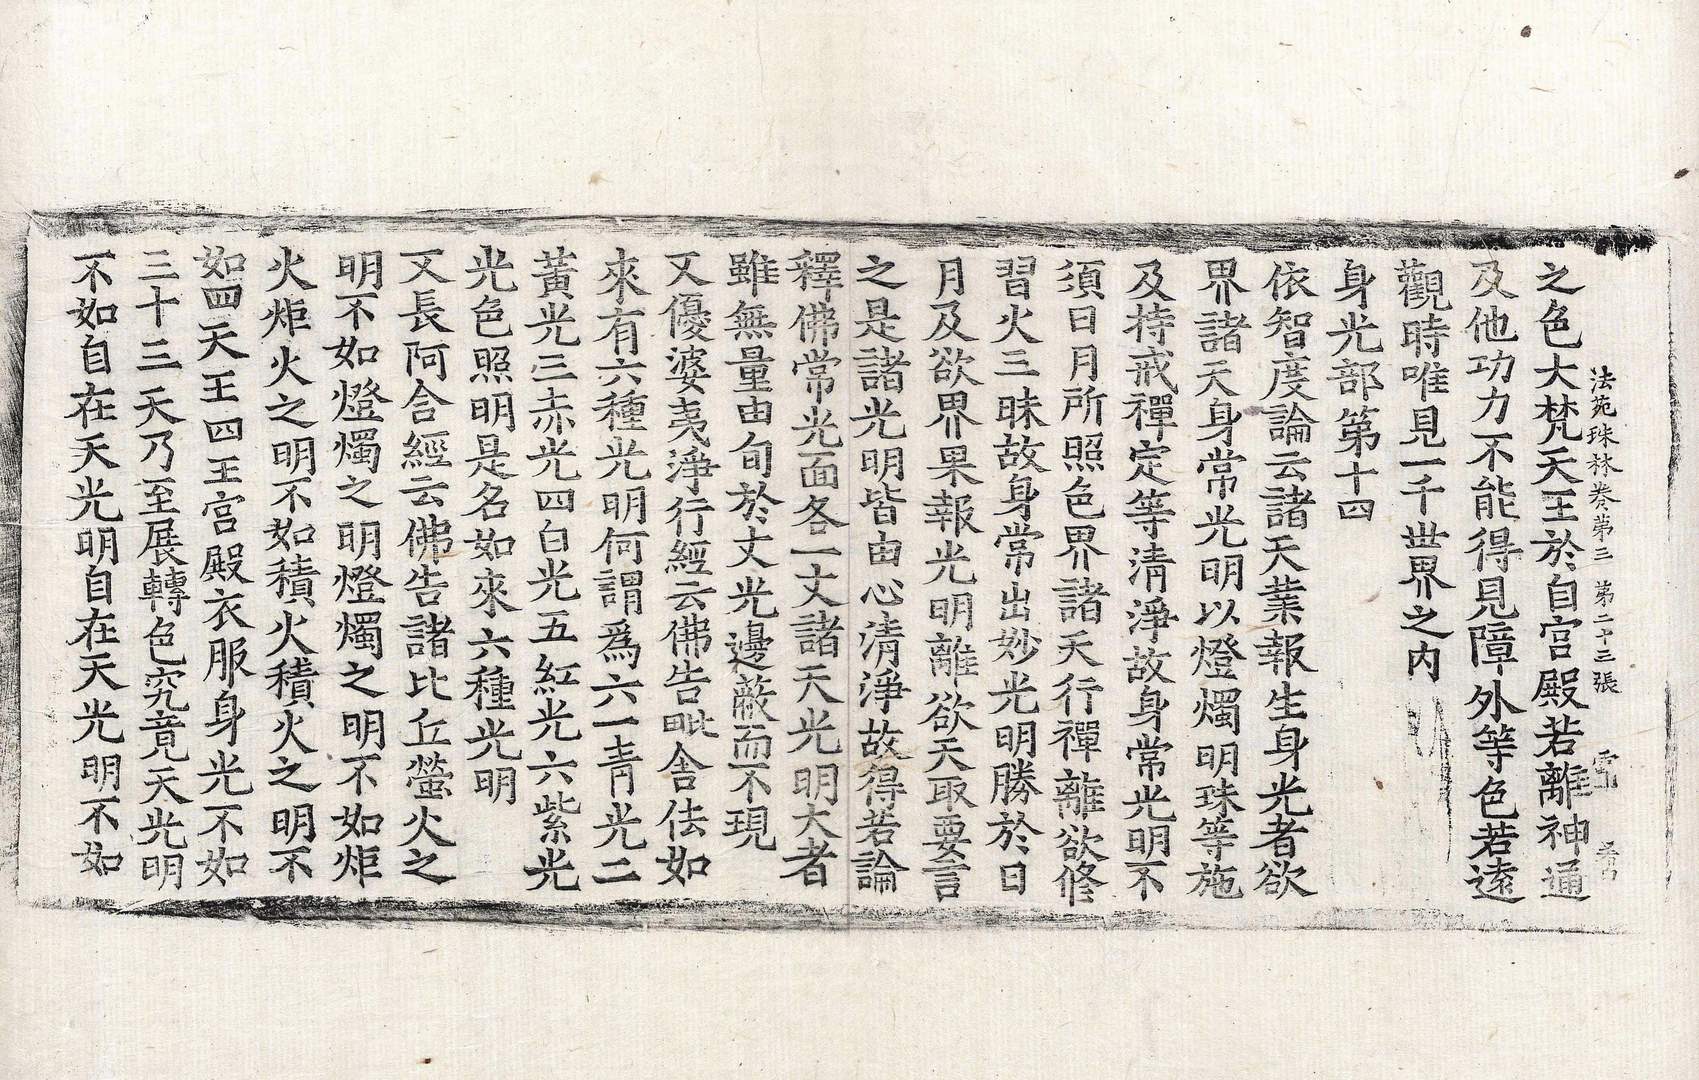 法苑珠林卷第三　第二十三張
之色大梵天王於自宮殿若離神通
及他功力不能得見障外等色若遠
觀時唯見一千世界之内
身光部第十四
依智度論云諸天業報生身光者欲
界諸天身常光明以燈燭明珠等施
及持戒禪定等清淨故身常光明不
須日月所照色界諸天行禪離欲修
習火三昧故身常出妙光明勝於日
月及欲界果報光明離欲天取要言
之是諸光明皆由心清淨故得若論
釋佛常光面各一丈諸天光明大者
雖無量由旬於丈光邊蔽而不現
又優婆夷淨行經云佛告毗舍佉如
來有六種光明何謂爲六一青光二
黃光三赤光四白光五紅光六紫光
光色照明是名如來六種光明
又長阿含經云佛告諸比丘螢火之
明不如燈燭之明燈燭之明不如炬
火炬火之明不如積火積火之明不
如四天王四王宮殿衣服身光不如
三十三天乃至展轉色究竟天光明
不如自在天光明自在天光明不如